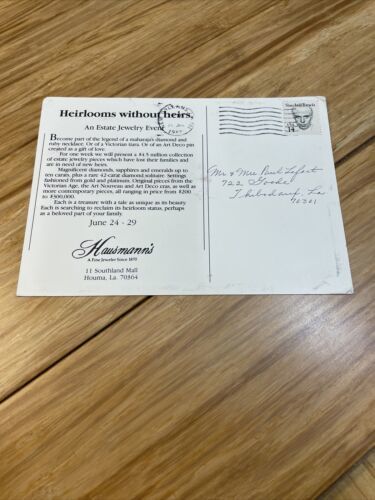 Heirlooms without heirs.
An Estate Jewelry Event
Become part of the legend of a maharaja's diamond and
ruby necklace. Or of a Victorian tiara. Or of an Art Deco pin
created as a gift of love.
For one week we will present a $1.5 million collection
of estate jewelry pieces which have lost their families and
are in need of new heirs.
Magnificent diamonds, sapphires and emeralds up to
ten carats, plus a rare 42-carat diamond solitaire. Settings
fashioned from gold and platinum. Original pieces from the
Victorian Age, the Art Nouveau and Art Deco eras, as well as
more contemporary pieces, all ranging in price from $200
to $300,000.
Each is a treasure with a tale as unique as its beauty.
Each is searching to reclaim its heirloom status, perhaps
as a beloved part of your family.
June 24 - 29
Hausmann's
A Fine Jeweler Since 1870
11 Southland Mall
Houma, La. 70364
Sinclair Lewis
14
Mr & Mrs Paul
722
Thibodaux, La
70301